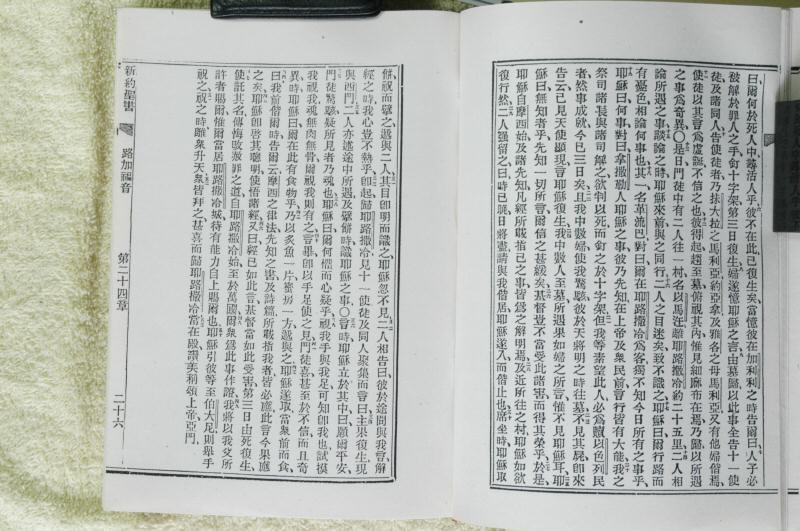 曰爾何於死人中尋活人乎彼不在此已復生矣當憶彼在加利利之時告爾曰人子必
被解於罪人之手釘十字架第三日復生婦遂憶耶穌之言由墓歸以此事全告十一使
徒及諸同人告使徒者乃抹大拉之馬利亞約亞拿及雅各之母馬利亞又有他婦偕焉
使徒以其言為虛誕不信之也彼得起趨至墓俯視其內惟見細麻布在焉乃歸以所遇
之事為奇異○是日門徒中有二人往一村名以馬忤離耶路撒冷約二十五里二人相
論所遇之事談論之時耶穌來前與之同行二人之目迷矣致不識之耶穌曰爾行路而
有憂色相論何事也其一名革流巴對曰爾在耶路撒冷為客獨不知今日所有之事乎
耶穌曰何事對曰拿撒勒人耶穌之事彼乃先知在上帝及衆民前言行皆有大能我之
祭司諸長與諸司解之欲判以死而釘之於十字架但我等素望此人必為贖以色列民
者然事成就今已三日矣且我中數婦使我驚駭彼於天將明之時往墓不見其屍卽來
告云已見天使顯現言耶穌復生我中數人至墓所遇果如婦之所言惟不見耶穌耳耶
穌曰無知者乎先知一切所言爾信之甚緩矣基督豈不當受此諸害而得其榮乎於是
耶穌自摩西始及諸先知凡經所載指己之事皆為之解明焉及近所往之村耶穌如欲
復行然二人强留之曰時已晚日將盡請與我偕居耶穌遂入而偕止也席坐時耶穌取
餅祝而擘之遞與二人其目卽明而識之耶穌忽不見二人相告曰彼於途間與我言解
經之時我心豈不熱乎卽起歸耶路撒冷見十一使徒及同人聚集而言曰主果復生現
與西門二人亦述途中所遇及擘餅時識耶穌之事○言時耶穌立於其中曰願爾平安
門徒驚駭疑所見者乃魂也耶穌曰爾何懼而心疑乎視我手與我足可知卽我也試摸
我視我魂無肉無骨爾視我則有之言畢卽以手足使之見門徒喜甚至於不信而且奇
異時耶穌曰爾在此有食物乎乃以炙魚一片蜜房一方遞與之耶穌遂取當衆前而食
曰我前偕爾時告爾云摩西之律法先知之書及詩篇所載指我者皆必應此言今果應
之矣耶穌卽啓其聰明使悟諸經又曰經已如此言基督當如此受害第三日由死復生
使託其名傳悔改赦罪之道自耶路撒冷始至於萬國爾衆為此事作證我將以我父所
許者賜爾惟爾當居耶路撒冷城待有能力自上賜爾也耶穌引彼等至伯大尼則舉手
祝之祝之時離衆升天衆皆拜之甚喜而歸耶路撒冷常在殿讚美稱頌上帝亞門
新約聖書
路加福音
第二十四章
二十六